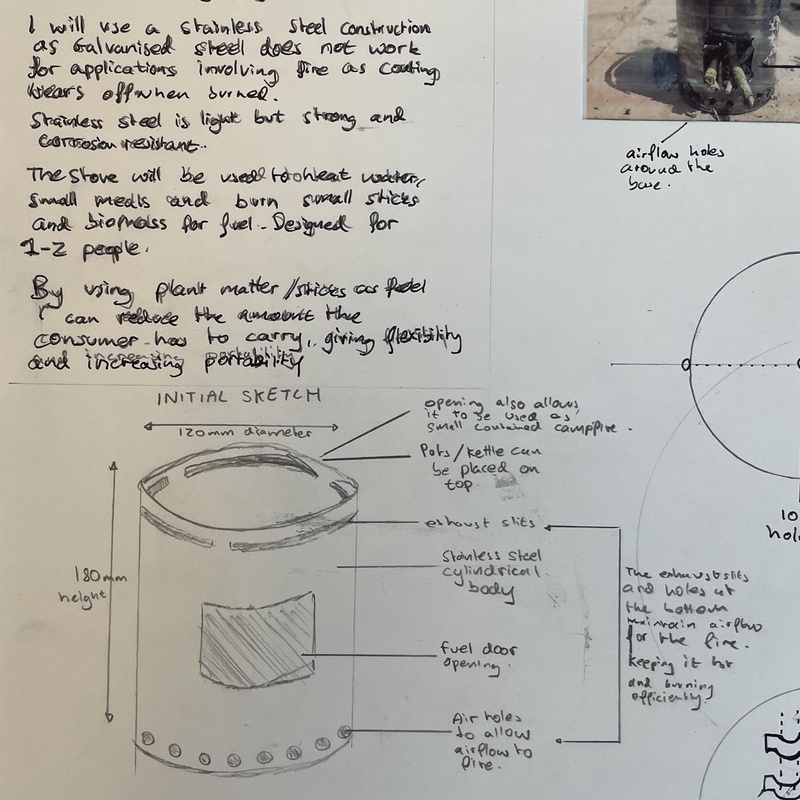 I will use a stainless steel construction
as Galvanised steel does not work
for applications involving fire as coating
wears off when burned.
Stainless steel is light but strong and
corrosion resistant.
The stove will be used to heat water,
small meals and burn small sticks
and biomass for fuel. Designed for
1-2 people.
By using plant matter/sticks as fuel
I can reduce the amount the
consumer has to carry, giving flexibility
and increasing portability
airflow holes
around the
base.
INITIAL SKETCH
120mm diameter
180mm
height
opening also allows
it to be used as
small contained campfire.
Pots/kettle can
be placed on
top.
exhaust slits
Stainless steel
cylindrical
body
fuel door
opening.
Air holes
to allow
airflow to
fire.
The exhaust slits
and holes at
the bottom
maintain airflow
for the fire.
keeping it hot
and burning
efficiently.
10